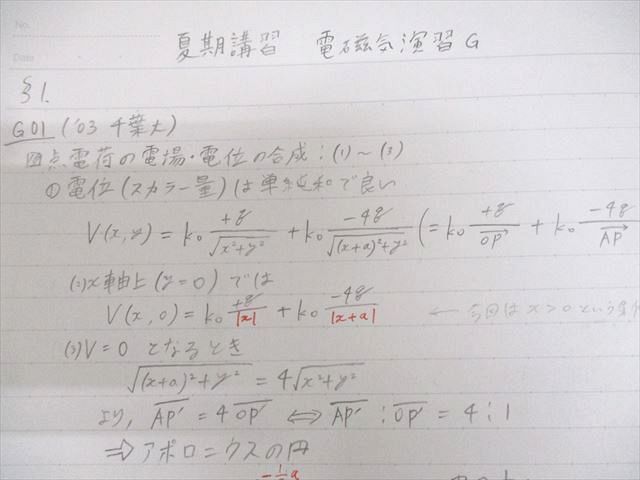 No.
Date
夏期講習 電磁気演習G
§1.
G01 ('03 千葉大)
点電荷の電場・電位の合成:(1)~(3)
①電位(スカラー量)は単純和で良い
V(x,y) = k₀ +q/√(x²+y²) + k₀ -4q/√((x+a)²+y²) (= k₀ +q/OP + k₀ -4q/AP
(2)x軸上(y=0)では
V(x,0) = k₀ +q/|x| + k₀ -4q/|x+a| ← 今回は x>0 という
(3)V=0 となるとき
√((x+a)²+y²) = 4√(x²+y²)
より, AP' = 4OP' ⇔ AP' : OP' = 4 : 1
⇒アポロニウスの円